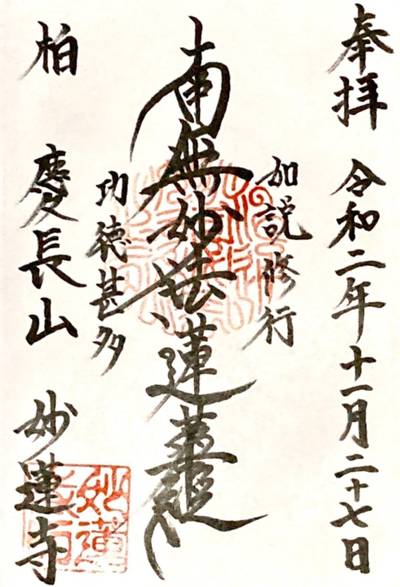 奉拝 令和二年十一月二十七日
如説修行
南無妙法蓮華経
功徳甚多
柏 慶長山 妙蓮寺